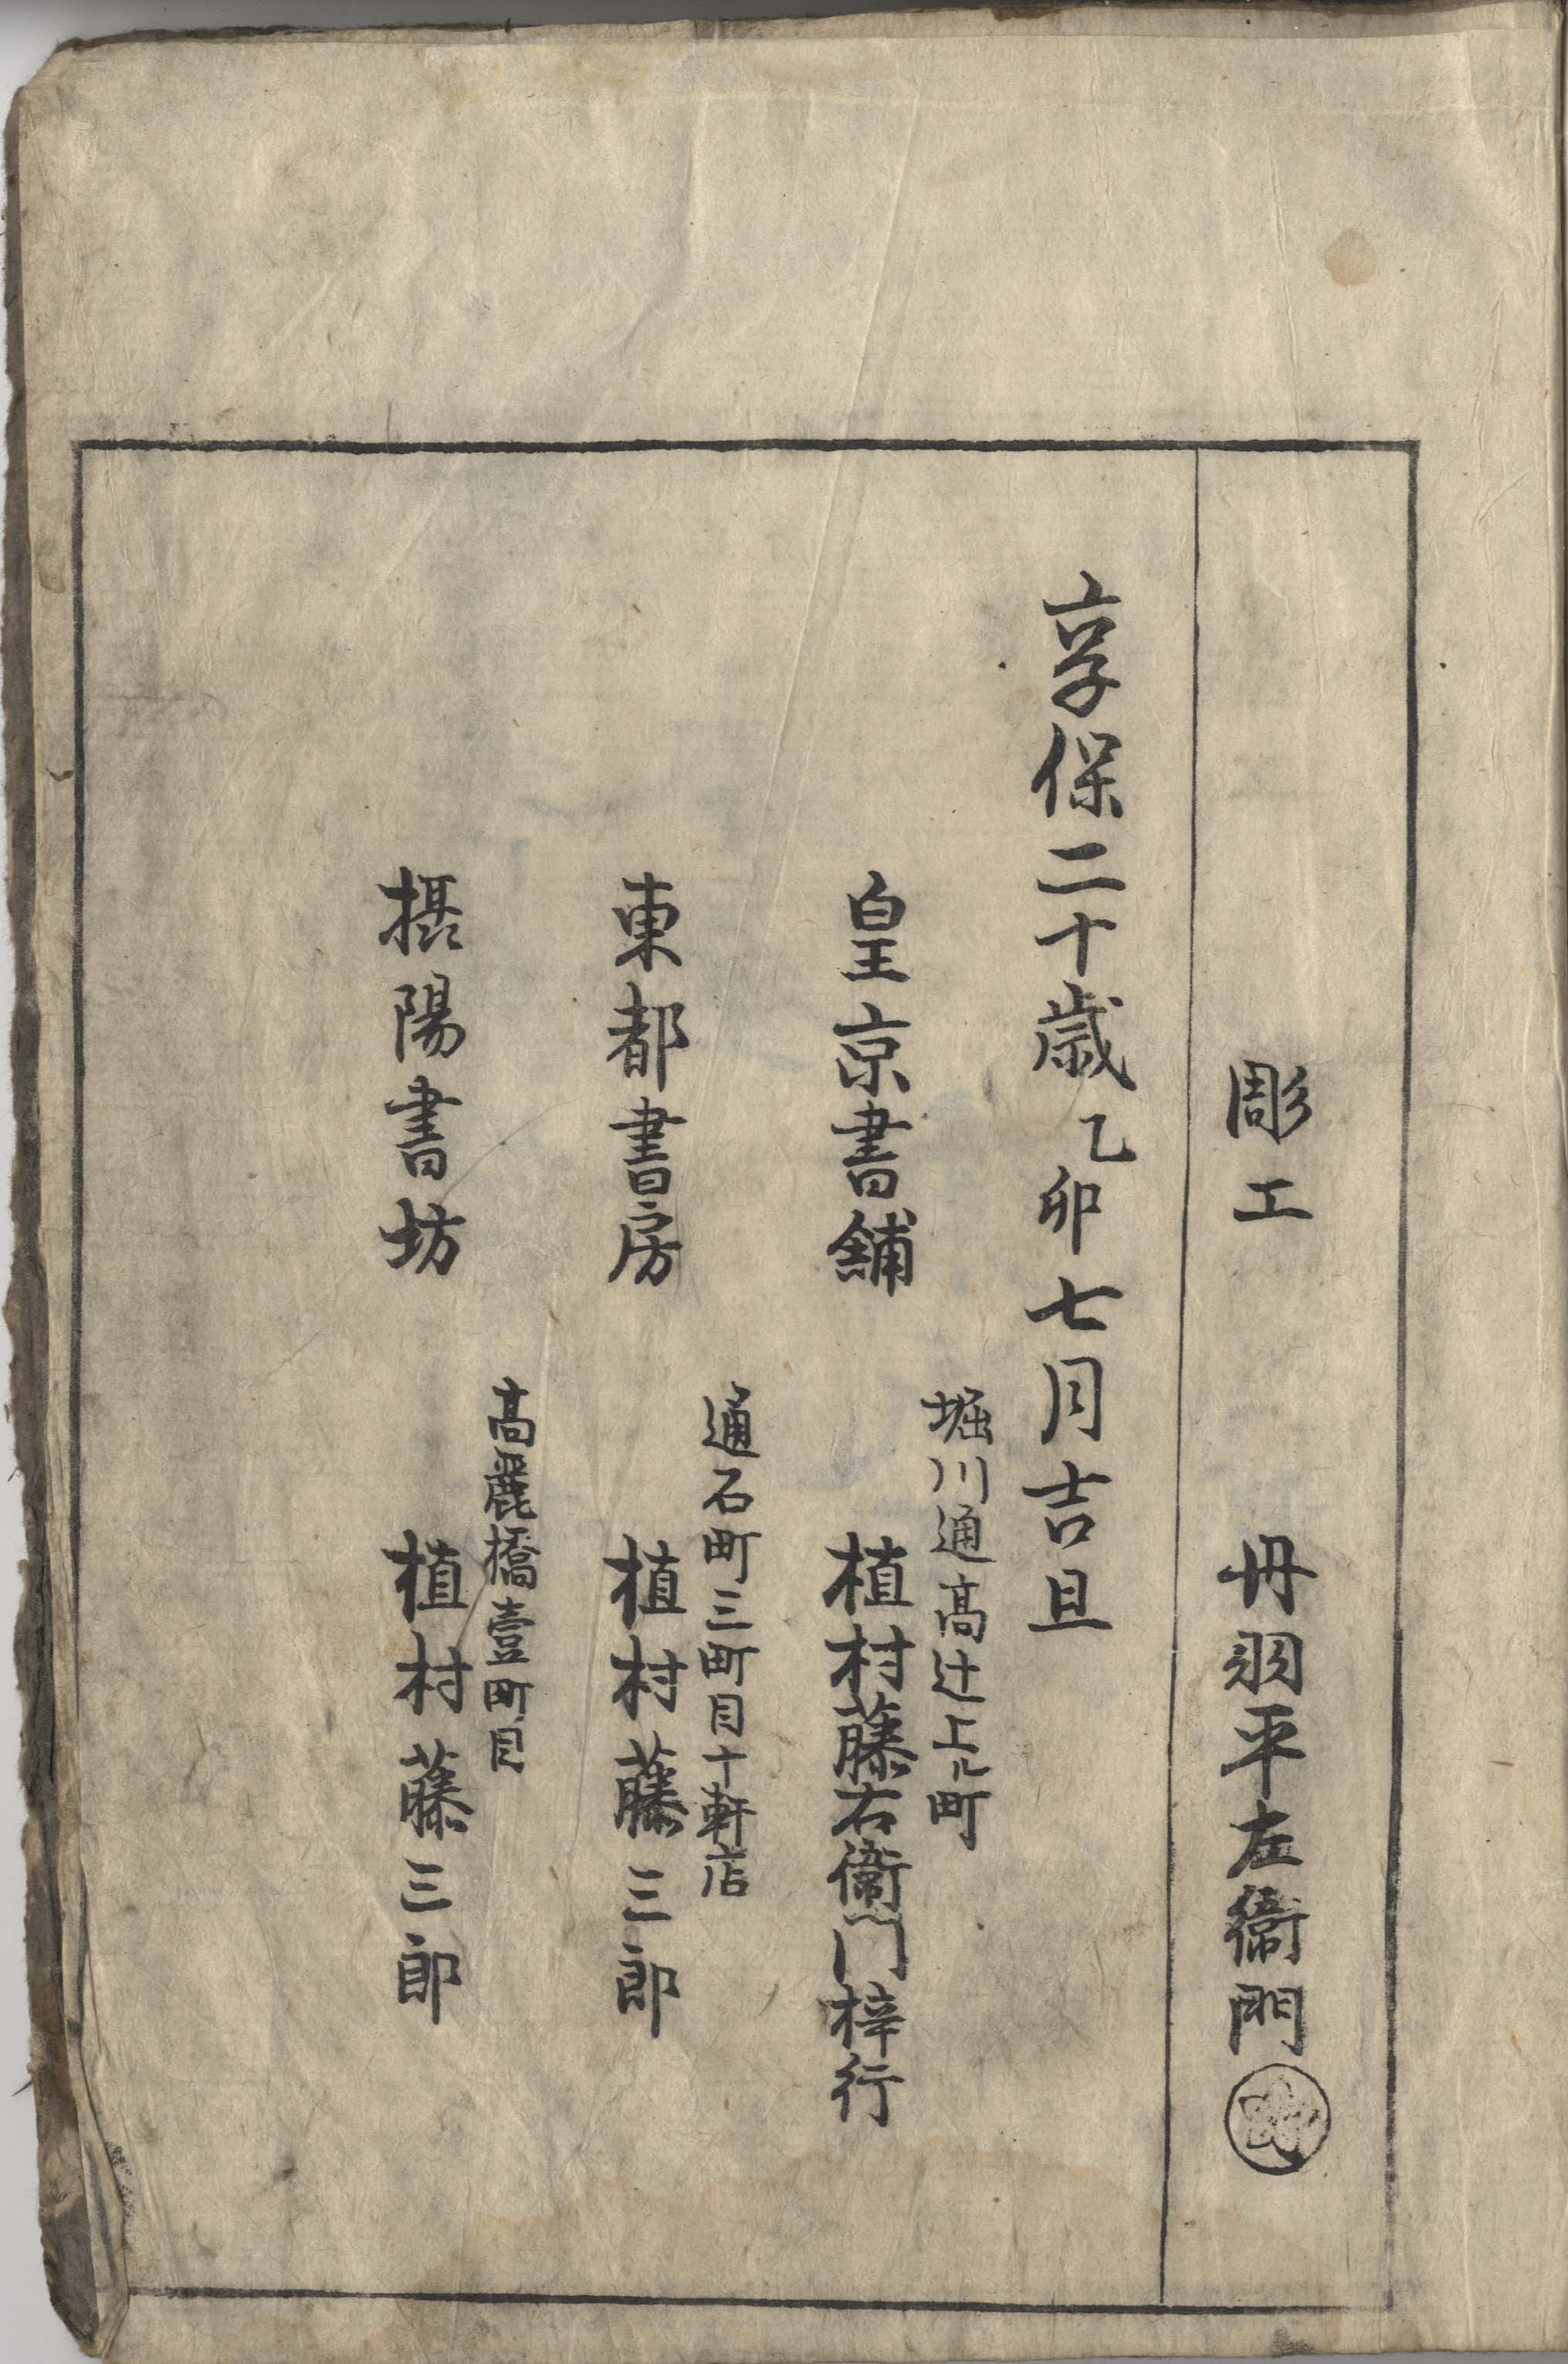 彫工　丹羽平左衞門
享保二十歳乙卯七月吉旦
堀川通高辻上ル町
皇京書舗　植村藤右衞門梓行
通石町三町目十軒店
東都書房　植村藤三郎
高麗橋壹町目
摂陽書坊　植村藤三郎